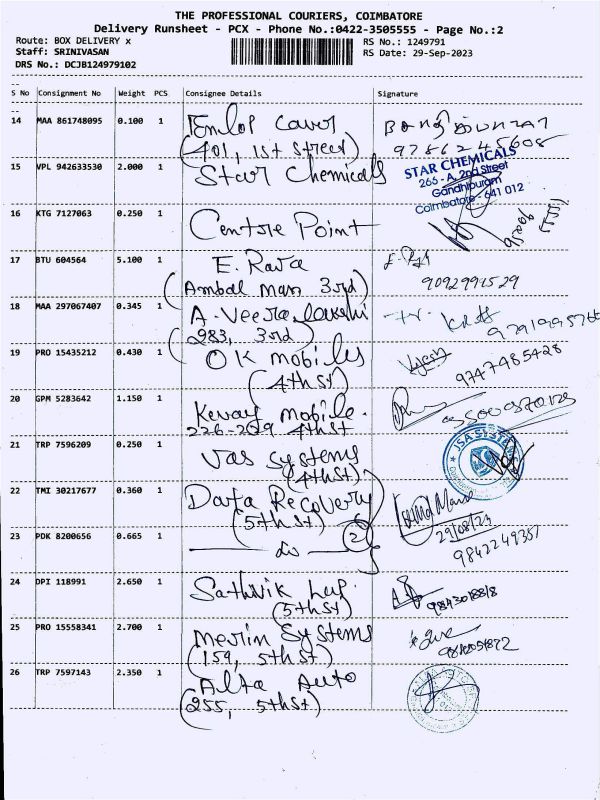 THE PROFESSIONAL COURIERS, COIMBATORE
Delivery Runsheet - PCX - Phone No.:0422-3505555 - Page No.:2
Route: BOX DELIVERY x
RS No.: 1249791
Staff: SRINIVASAN
RS Date: 29-Sep-2023
DRS No.: DCJB124979102
S No Consignment No Weight PCS Consignee Details Signature
14 MAA 861748095 0.100 1 Emlop Cover
(401, 1st street)
9786245608
15 VPL 942633530 2.000 1 Star Chemicals
STAR CHEMICALS
265 - A, 2nd Street
Gandhipuram
Coimbatore - 641 012
16 KTG 7127063 0.250 1 Centre Point
17 BTU 604564 5.100 1 E. Raja
(Ambal Man 3rd)
18 MAA 297067407 0.345 1 A. Veeralakshmi
(283, 3rd)
19 PRO 15435212 0.430 1 OK mobiles
(4th st)
9747485428
20 GPM 5283642 1.150 1 mobile
226-229 4th st
21 TRP 7596209 0.250 1 Vas Systems
(4th st)
JSA SYSTEMS
22 TMI 30217677 0.360 1 Data Recovery
(5th st)
29/08/23
23 PDK 8200656 0.665 1 do (2)
9842249357
24 DPI 118991 2.650 1 Sathvik
(5th st)
25 PRO 15558341 2.700 1 Merlin Systems
(159, 5th st)
26 TRP 7597143 2.350 1 Alta Auto
(255, 5th st)